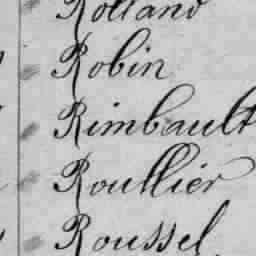 Rolland
Robin
Rimbault
Roullier
Roussel